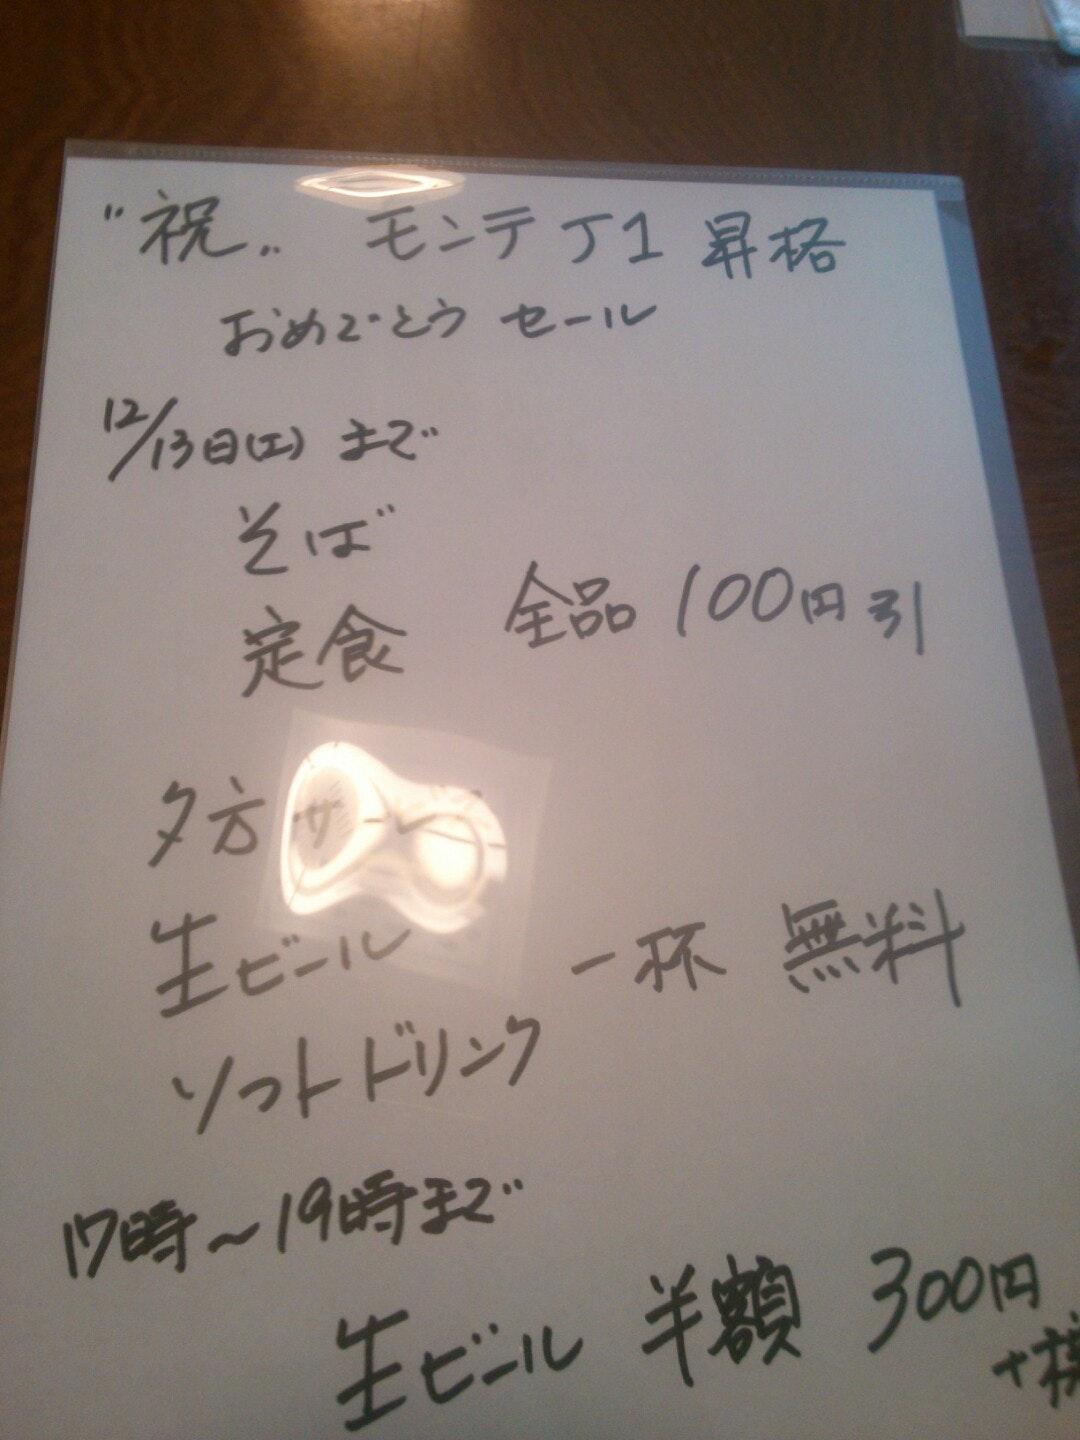 〃祝〃 モンテ J1 昇格
おめでとう セール
12/13日(土) まで
そば
定食 全品 100円引
夕方
生ビール 一杯 無料
ソフトドリンク
17時〜19時まで
生ビール 半額 300円